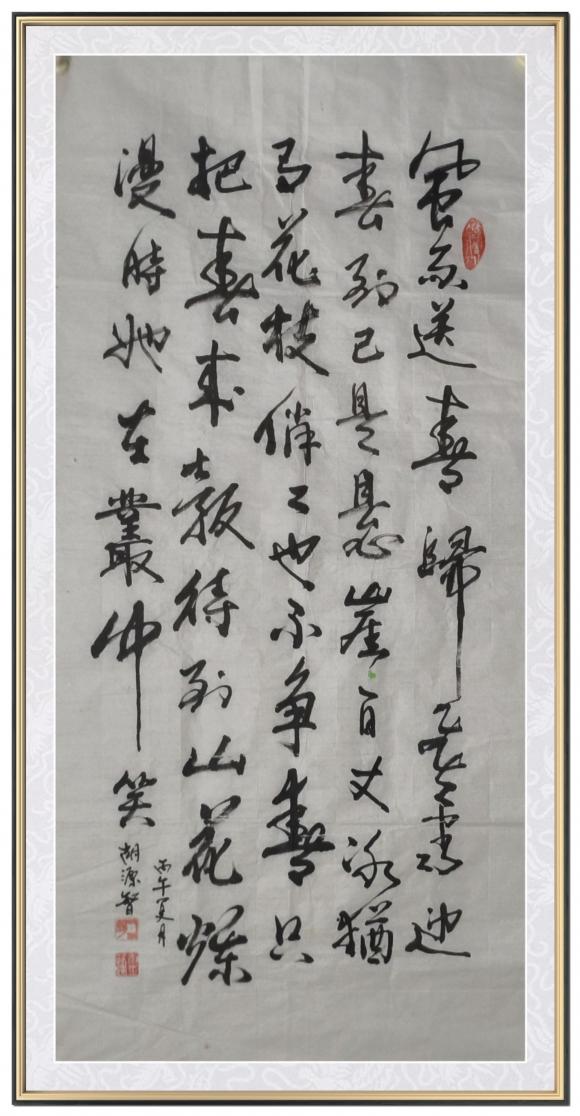 風雨送春歸飛雪迎
春到已是懸崖百丈冰猶
有花枝俏〻也不争春只
把春来報待到山花爛
漫時她在叢中笑
丙午夏月
胡源智